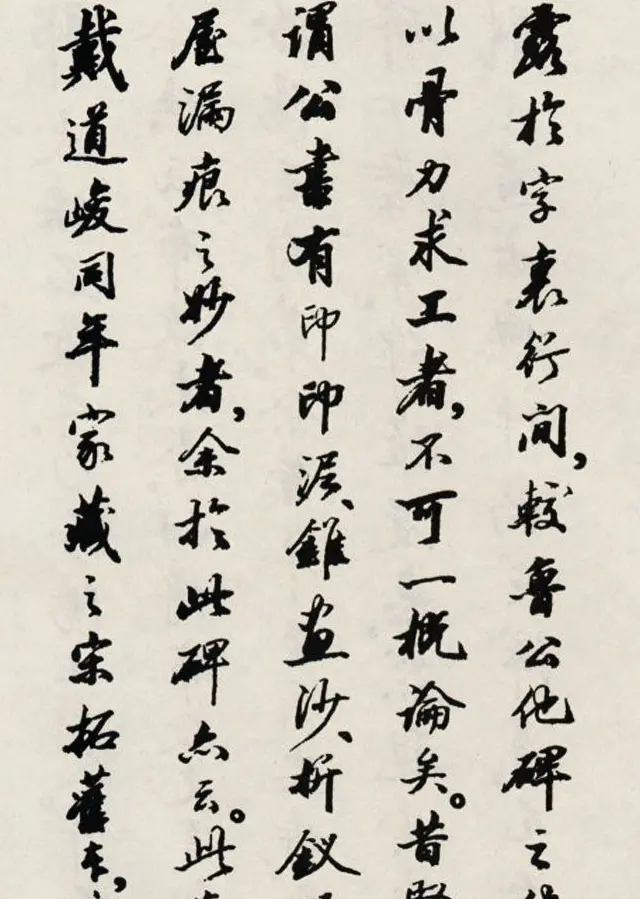 露於字裏行間，較魯公他碑之
以骨力求工者，不可一概論矣。昔賢
謂公書有印印泥、錐畫沙、折釵
屋漏痕之妙者，余於此碑亦云。此
戴道峻同年家藏之宋拓舊本，